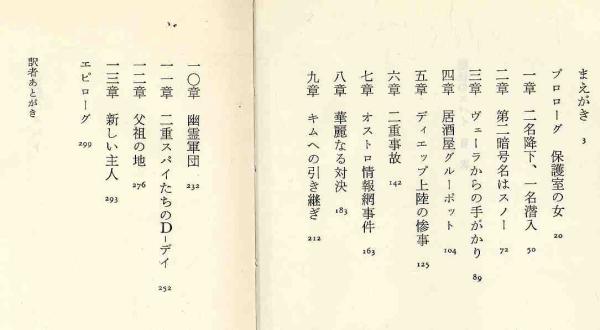 まえがき 3
プロローグ 保護室の女 20
一章 二名降下、一名潜入 50
二章 第二暗号名はスノー 72
三章 ヴェーラからの手がかり 89
四章 居酒屋グルーボット 104
五章 ディエップ上陸の惨事 125
六章 二重事故 142
七章 オストロ情報網事件 163
八章 華麗なる対決 183
九章 キムへの引き継ぎ 212
一〇章 幽霊軍団 232
一一章 二重スパイたちのD-デイ 252
一二章 父祖の地 276
一三章 新しい主人 293
エピローグ 299
訳者あとがき